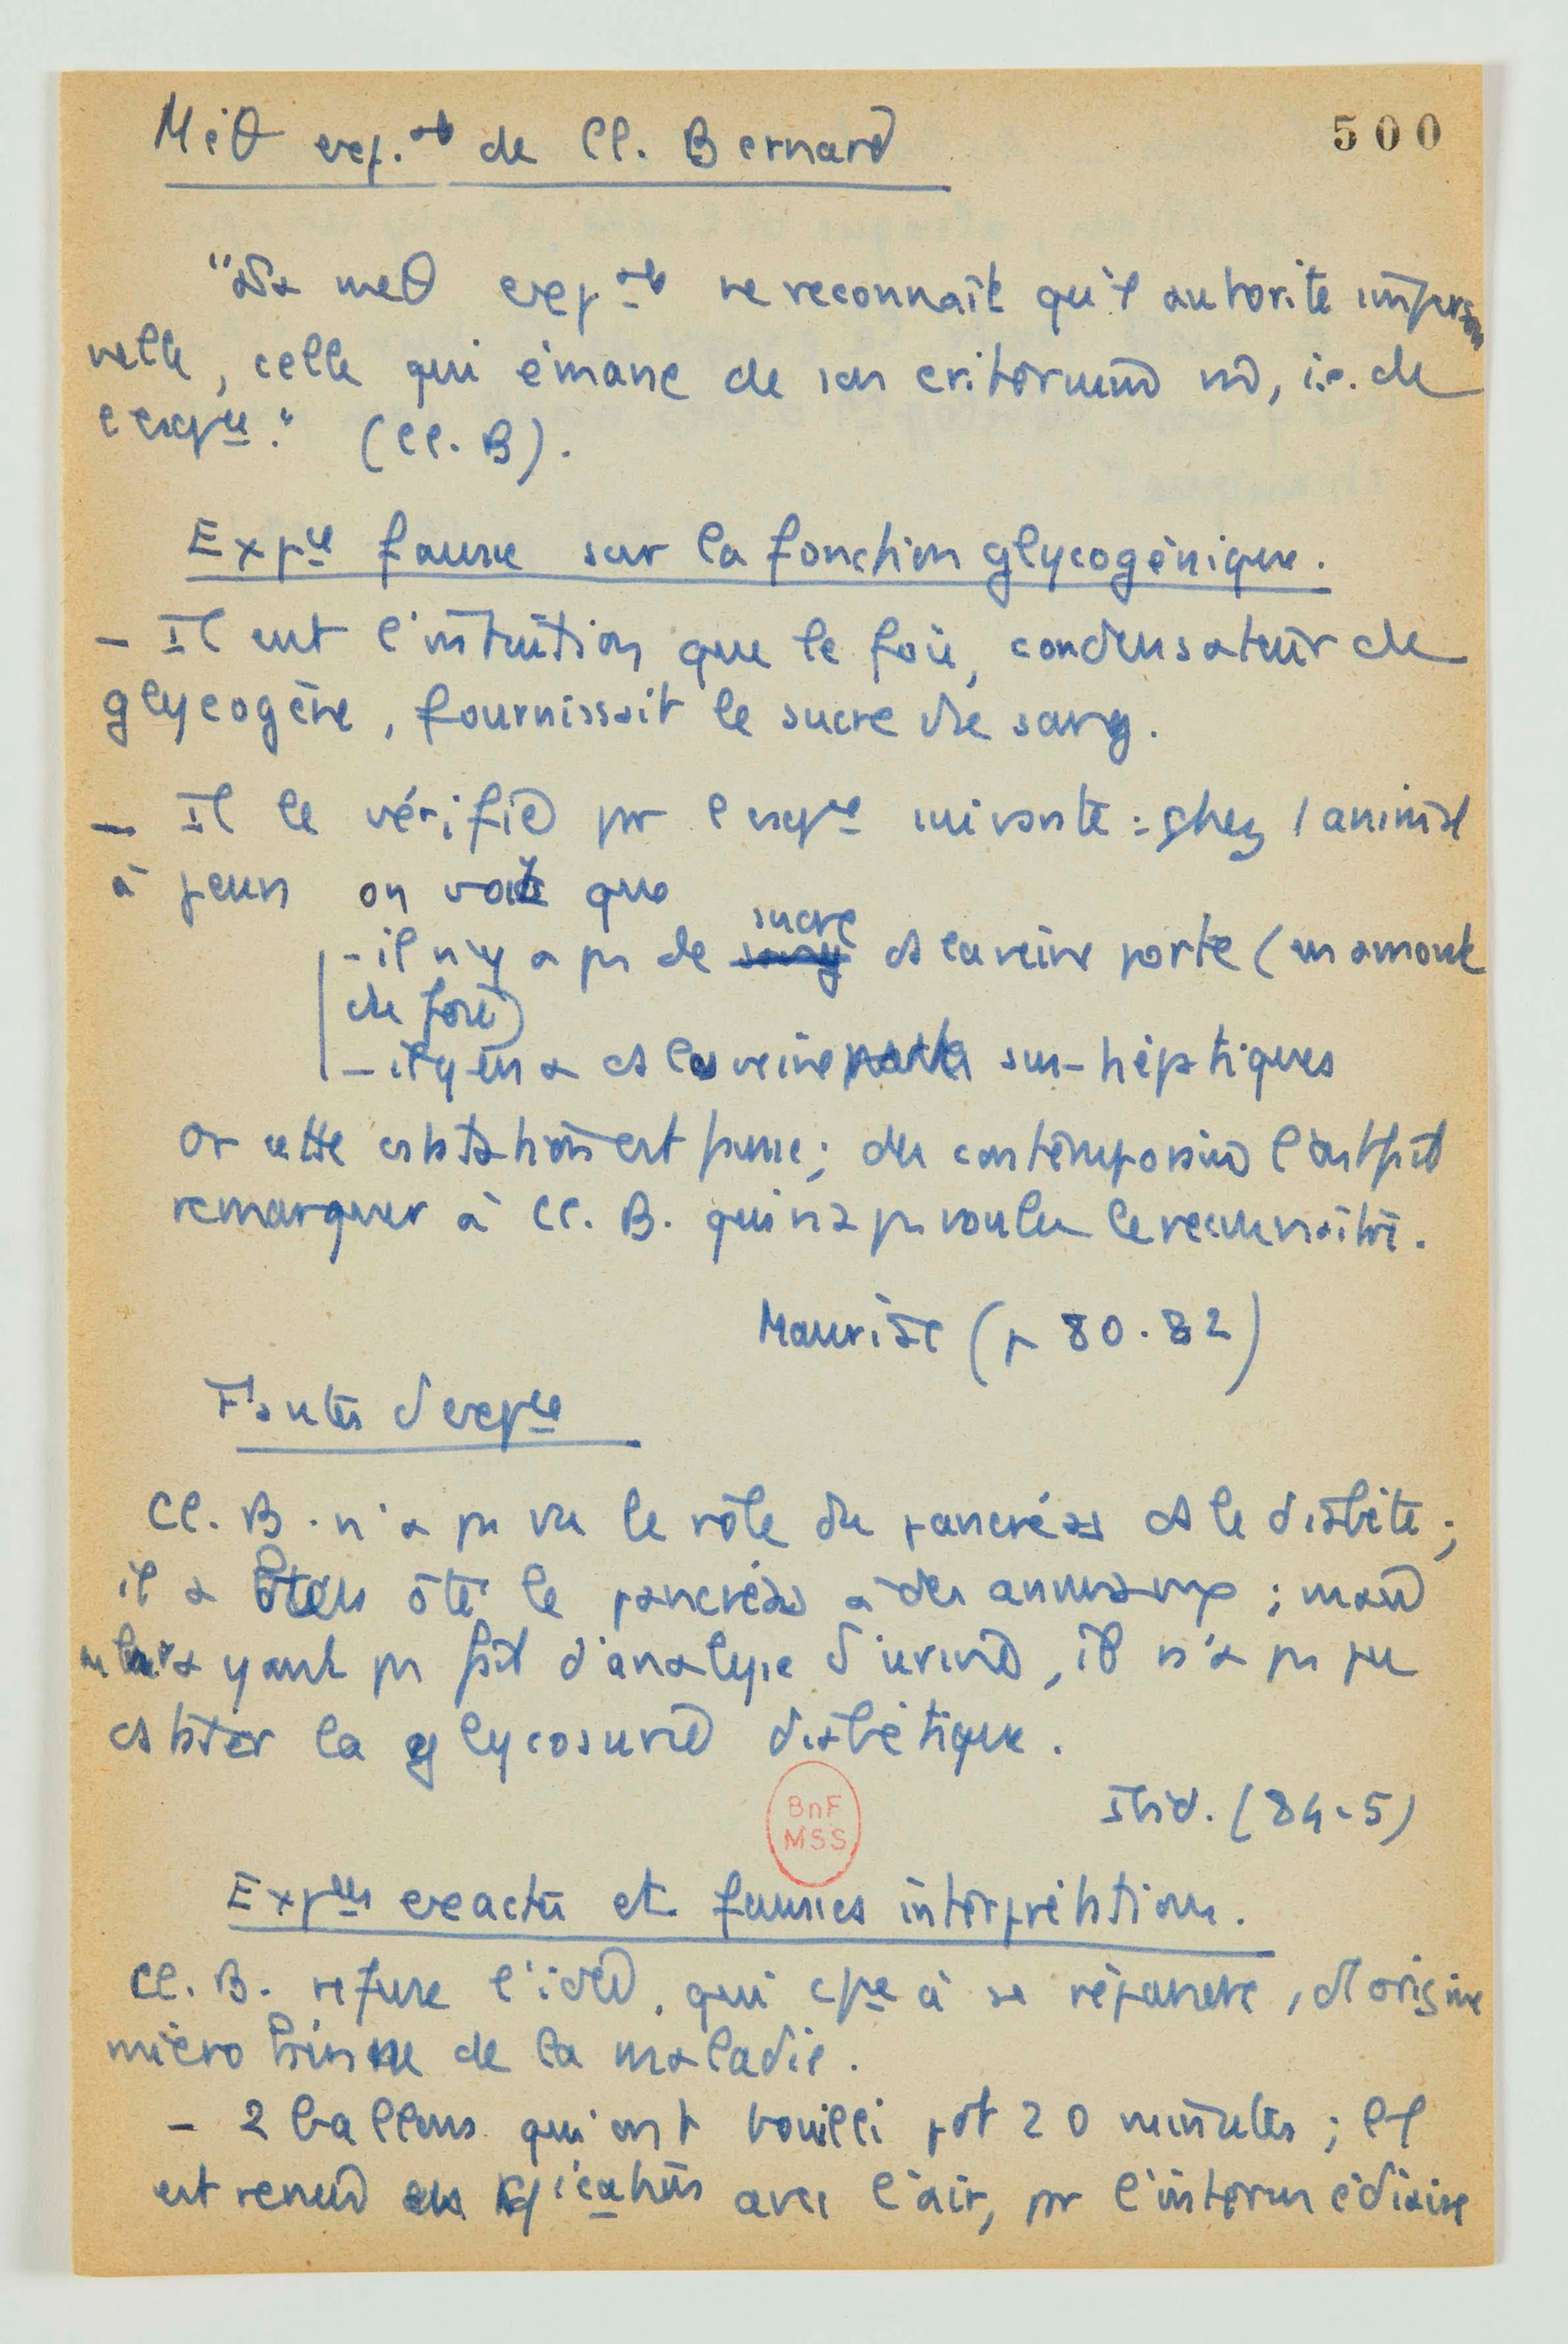 Méθ exp.ale de Cl. Bernard
500
"La meθ expale ne reconnaît qu'1 autorité imperson
nelle, celle qui émane de son criterium , i.e. de
l'expce." (Cl. B).
Expce fausse sur la fonction glycogénique.
- Il eut l'intuition que le foie, condensateur de
glycogène, fournissait le sucre du sang.
- Il le vérifie pr l'expce suivante : chez l'animal
à jeun on voit que
sucre
- il n'y a ps de sang ds la veine porte (en amont
du foie)
- il y en a ds les veines sus-hépatiques
Or cette cstatation est fausse ; des contemporains l'ont fait
remarquer à Cl. B. qui n'a ps voulu le reconnaître.
Mauriac (p 80-82)
Fautes d'expce
Cl. B. n'a ps vu le rôle du pancréas ds le diabète ;
il a ôté le pancréas à des animaux ; mais
n'ayant ps fait d'analyse d'urine, il n'a ps pu
cstater la glycosurie diabétique.
Ibid. (84-5)
BnF
MSS
Expces exactes et fausses interprétations.
Cl. B. refuse l'idée, qui cpce à se répandre, d'1 origine
microbienne de la maladie.
- 2 ballons qui ont bouilli pdt 20 minutes ; l'1
est remis en avec l'air, pr l'intermédiaire